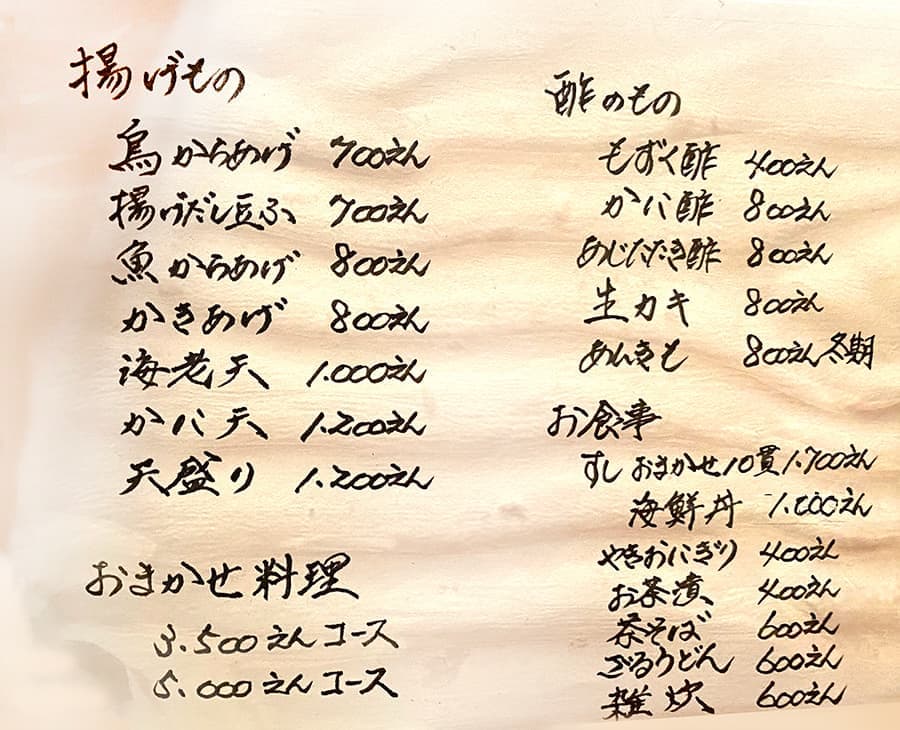 揚げもの
鳥からあげ 700えん
揚げだし豆ふ 700えん
魚からあげ 800えん
かきあげ 800えん
海老天 1.000えん
かに天 1.200えん
天盛り 1.200えん
おまかせ料理
3.500えんコース
5.000えんコース
酢のもの
もずく酢 400えん
かに酢 800えん
あじたたき酢 800えん
生カキ 800えん
あんきも 800えん冬期
お食事
すしおまかせ10貫1.700えん
海鮮丼
やきおにぎり 400えん
お茶漬 400えん
茶そば 600えん
ざるうどん 600えん
雑炊 600えん